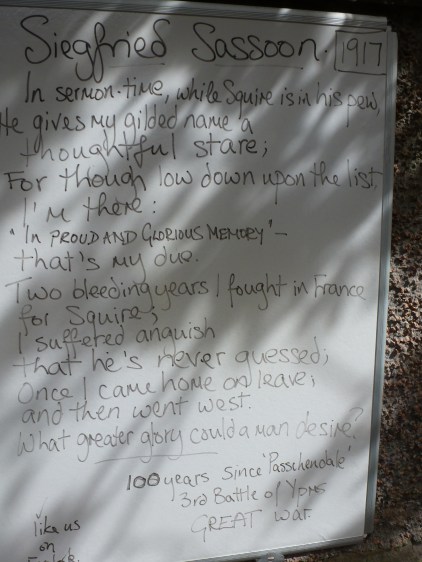 Siegfried Sassoon. 1917
In sermon-time, while Squire is in his pew,
He gives my gilded name a
thoughtful stare;
For though low down upon the list,
I'm there:
"In PROUD AND GLORIOUS MEMORY" –
that's my due.
Two bleeding years I fought in France
for Squire;
I suffered anguish
that he's never guessed;
Once I came home on leave;
and then went west.
What greater glory could a man desire?
100 years since 'Passchendale'
3rd Battle of Ypres
GREAT War.
like us
on